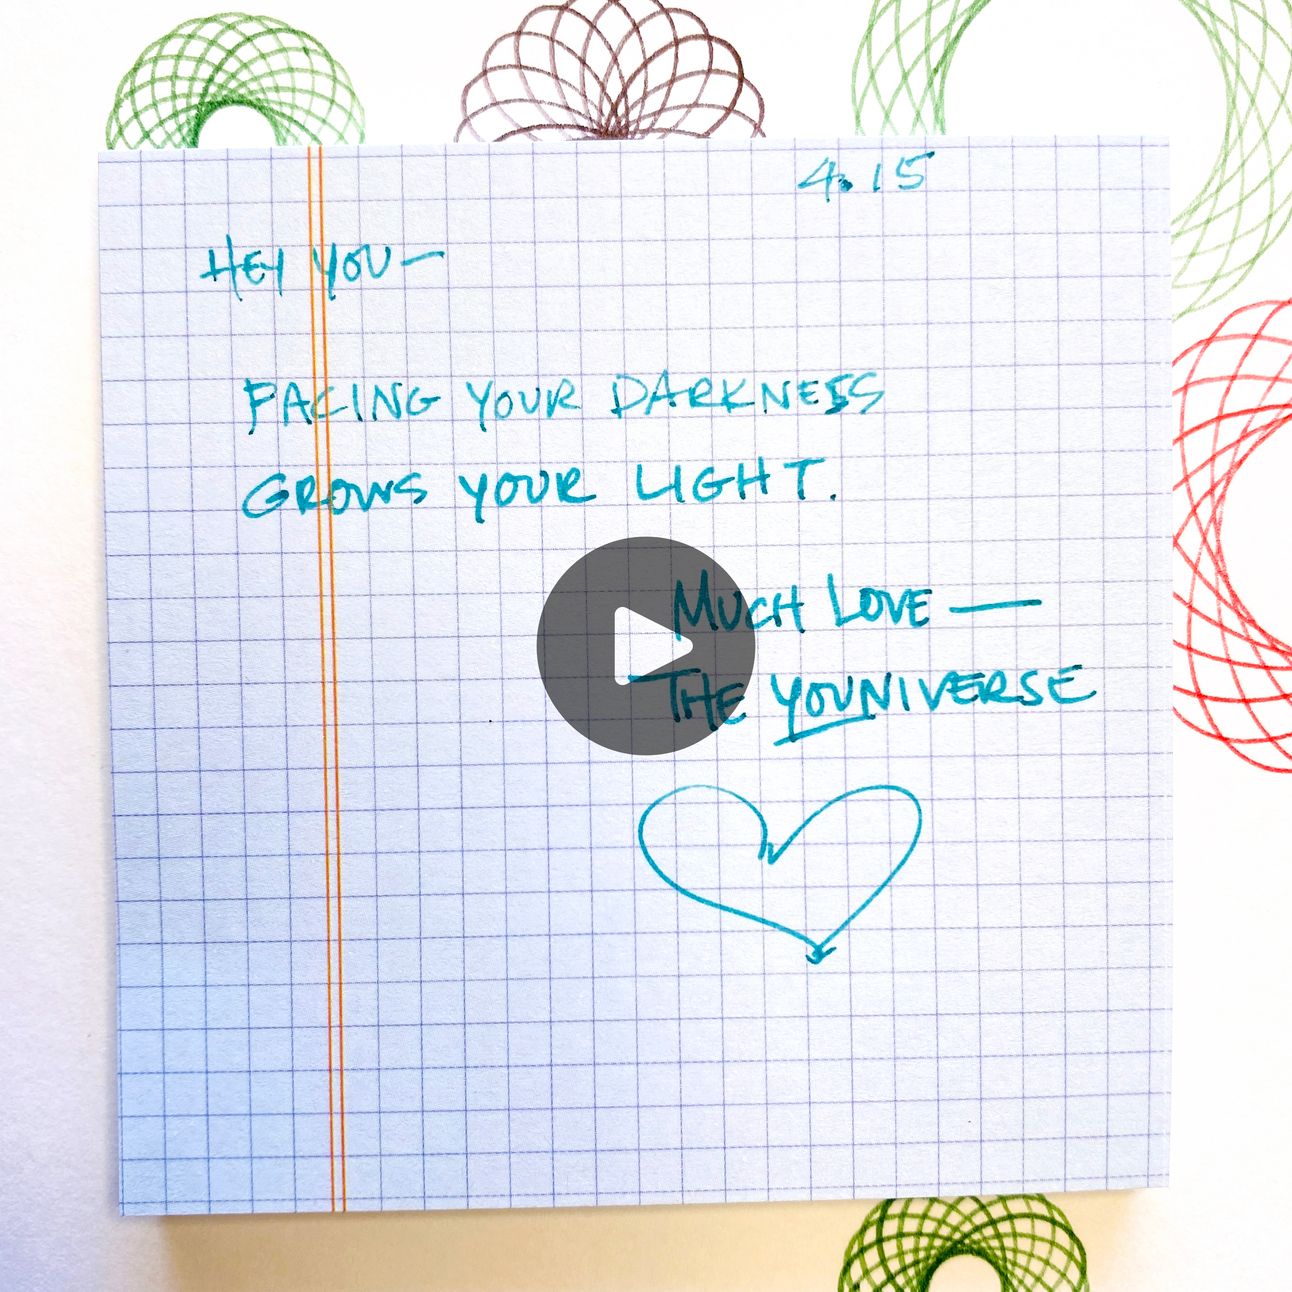 4.15
HEY YOU—
FACING YOUR DARKNESS
GROWS YOUR LIGHT.
MUCH LOVE—
THE YOUNIVERSE